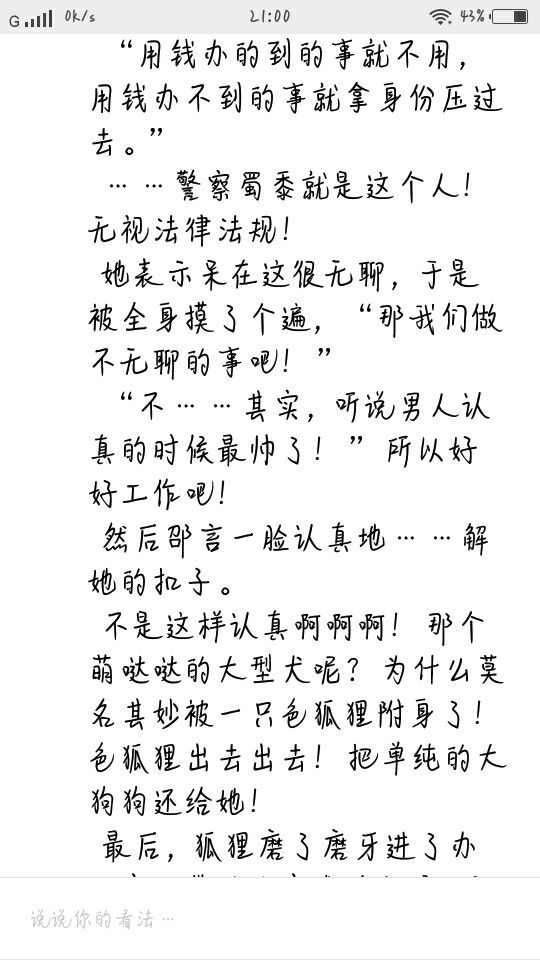 G 0k/s 21:00 43%
“用钱办的到的事就不用，
用钱办不到的事就拿身份压过
去。”
……警察蜀黍就是这个人！
无视法律法规！
她表示呆在这很无聊，于是
被全身摸了个遍，“那我们做
不无聊的事吧！”
“不……其实，听说男人认
真的时候最帅了！”所以好
好工作吧！
然后邵言一脸认真地……解
她的扣子。
不是这样认真啊啊啊！那个
萌哒哒的大型犬呢？为什么莫
名其妙被一只色狐狸附身了！
色狐狸出去出去！把单纯的大
狗狗还给她！
最后，狐狸磨了磨牙进了办
说说你的看法…